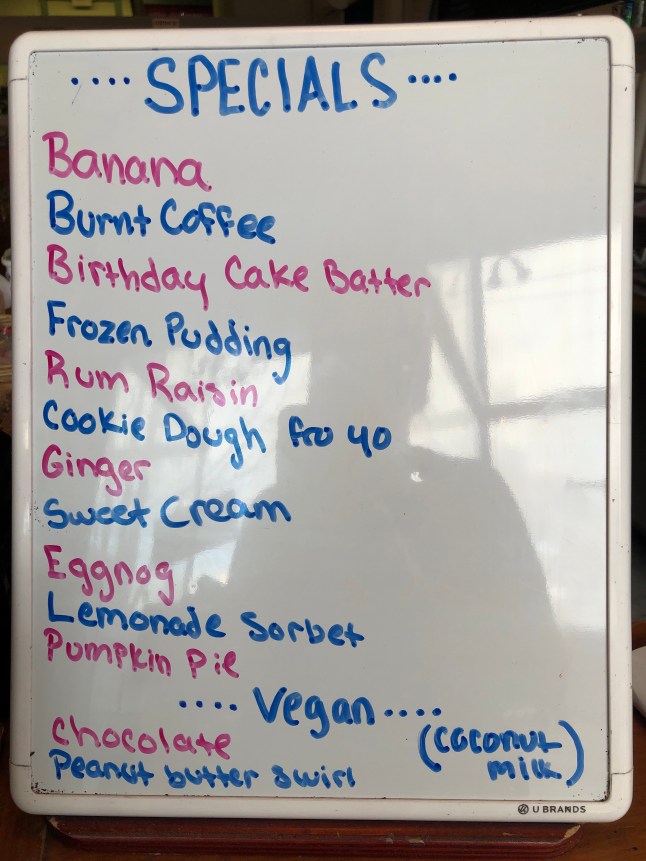 ....SPECIALS....
Banana
Burnt Coffee
Birthday Cake Batter
Frozen Pudding
Rum Raisin
Cookie Dough fro yo
Ginger
Sweet Cream
Eggnog
Lemonade Sorbet
Pumpkin Pie
....Vegan....
Chocolate
Peanut butter swirl
(coconut
milk)
U BRANDS